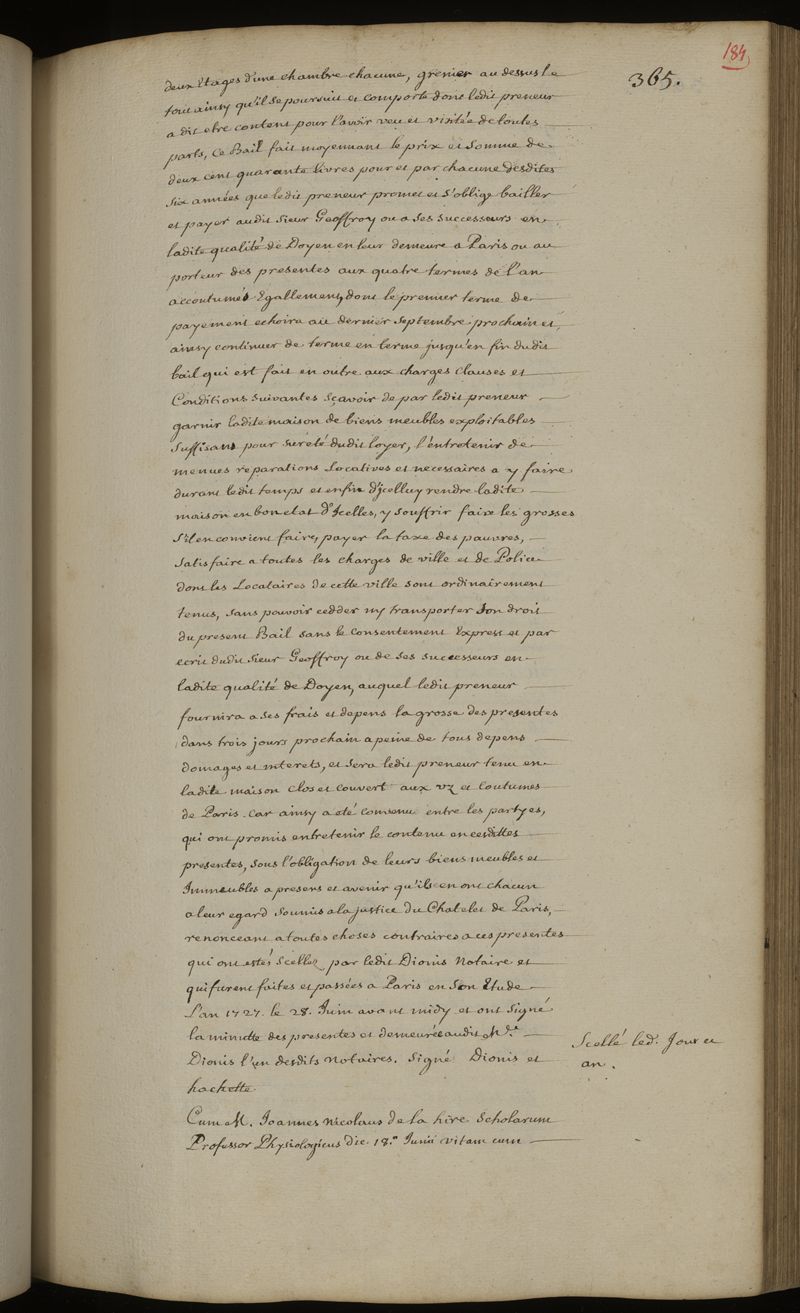 184
365.
deux Etages d'une chambre chacune, grenier au dessus le
tout ainsy qu'il se poursuit et comporte dont ledit preneur
a dit etre content pour l'avoir veu et visitée de toutes
parts, Ce Bail fait moyennant le prix et Somme de
deux cent quarante livres pour et par chacune desdites
Six années que ledit preneur promet et s'oblige bailler
et payer audit Sieur Geoffroy ou a ses Successeurs en
ladite qualité de Doyen en leur demeure a Paris ou au
porteur des presentes aux quatre termes de l'an
accoutumés Egallement, dont le premier terme de
payement echoira au dernier Septembre prochain et
ainsy continuer de terme en terme jusqu'en fin dudit
bail qui est fait en outre aux charges Clauses et
Conditions Suivantes Sçavoir de par ledit preneur
garnir ladite maison de biens meubles exploitables
Suffisans pour Sureté dudit loyer, l'entretenir de
menues reparations Locatives et necessaires a y faire
durant ledit temps et enfin d'Icelluy rendre ladite
maison en bon etat d'Icelles, y Souffrir faire les grosses
S'il en convient faire, payer la taxe des pauvres,
Satisfaire a toutes les charges de ville et de Police
dont les Locataires de cette ville sont ordinairement
tenus, sans pouvoir cedder ny transporter Son droit
du present Bail sans le Consentement Express et par
ecrit dudit Sieur Geoffroy ou de Ses Successeurs en
ladite qualité de Doyen, auquel ledit preneur
fournira a Ses frais et depens la grosse des presentes
dans trois jours prochain a peine de tous depens
domages et interets, et Sera ledit preneur tenu en
ladite maison Clos et Couvert aux uz et Coutumes
de Paris. Car ainsy a eté Convenu entre les partyes,
qui ont promis entretenir le contenu en cesdittes
presentes, Sous l'obligation de leurs biens meubles et
Immeubles a presens et avenir qu'ils en ont chacun
a leur egard Soumis a la justice du Chatelet de Paris,
renonceant a toutes choses contraires a ces presentes
qui ont estés Scellez par ledit Dionis Notaire et
qui furent faites et passées a Paris en Son Etude
L'an 1727. le 28. Juin avant midy et ont Signé
la minutte des presentes et demeurée audit Me.
Dionis l'un desdits Notaires. Signé Dionis et
hachette.
Scellé led. Jour et
an.
Cum M. Joannes Nicolaus de la hire Scholarum
Professor Physiologicus die 18.a Junii vitam cum